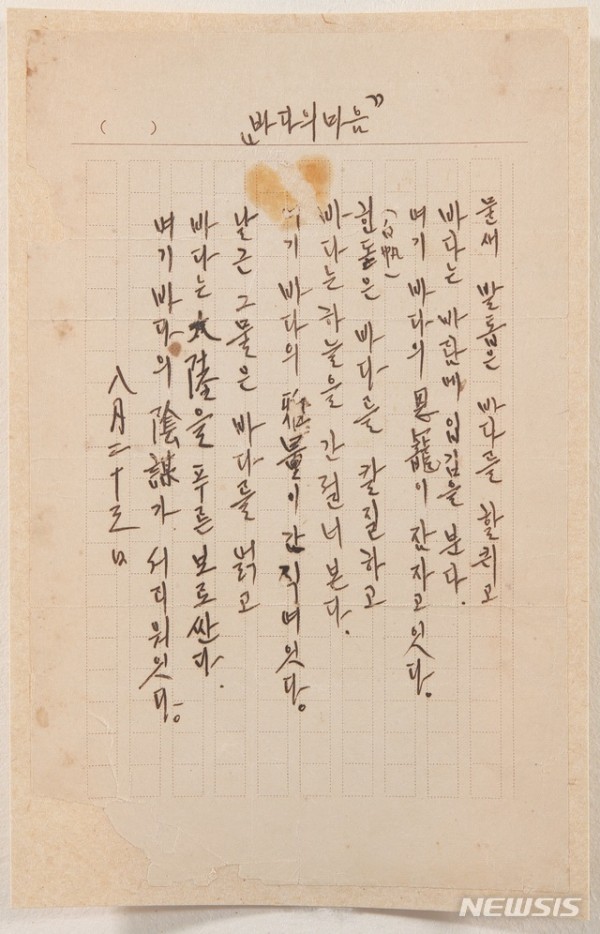 ( )
„바다의마음”
물새 발톱은 바다를 할퀴고
바다는 바람에 입김을 분다.
여기 바다의 恩寵이 잠자고잇다。
(白帆)
흰돛은 바다를 칼질하고
바다는 하늘을 간질너 본다.
여기 바다의 雅量이 간직여잇다。
날근 그물은 바다를 얽고
바다는 大陸을 푸른 보로싼다.
여기 바다의 陰謀가 서리워잇다。
八月二十三日
NEWSIS